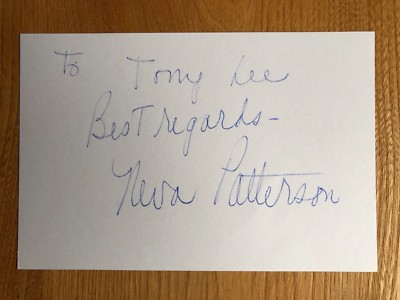 To Tony Lee
Best regards-
Neva Patterson